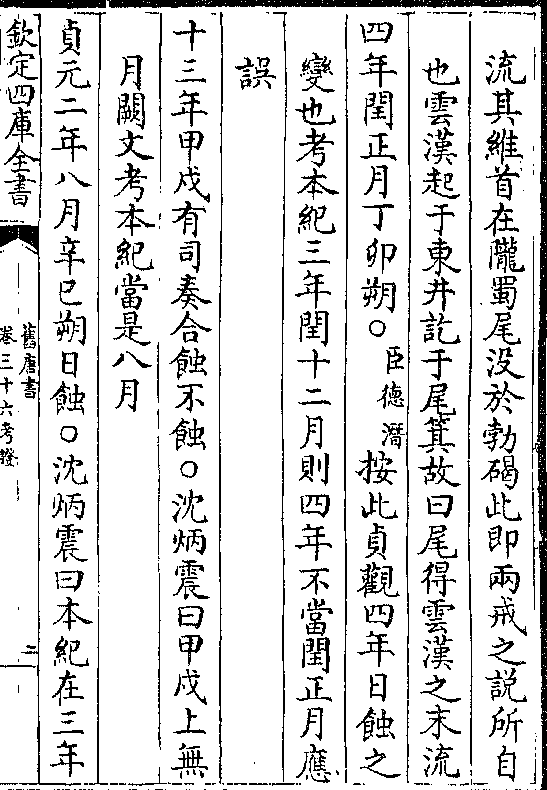 流其維首在隴蜀尾没於勃碣此即兩戒之說所自
也雲漢起于東井訖于尾箕故曰尾得雲漢之末流
四年閏正月丁卯朔○臣德潛按此貞觀四年日蝕之
變也考本紀三年閏十二月則四年不當閏正月應
誤
十三年甲戌有司奏合蝕不蝕○沈炳震曰甲戌上無
月闕文考本紀當是八月
貞元二年八月辛巳朔日蝕○沈炳震曰本紀在三年
欽定四庫全書
舊唐書
卷三十六考證
二